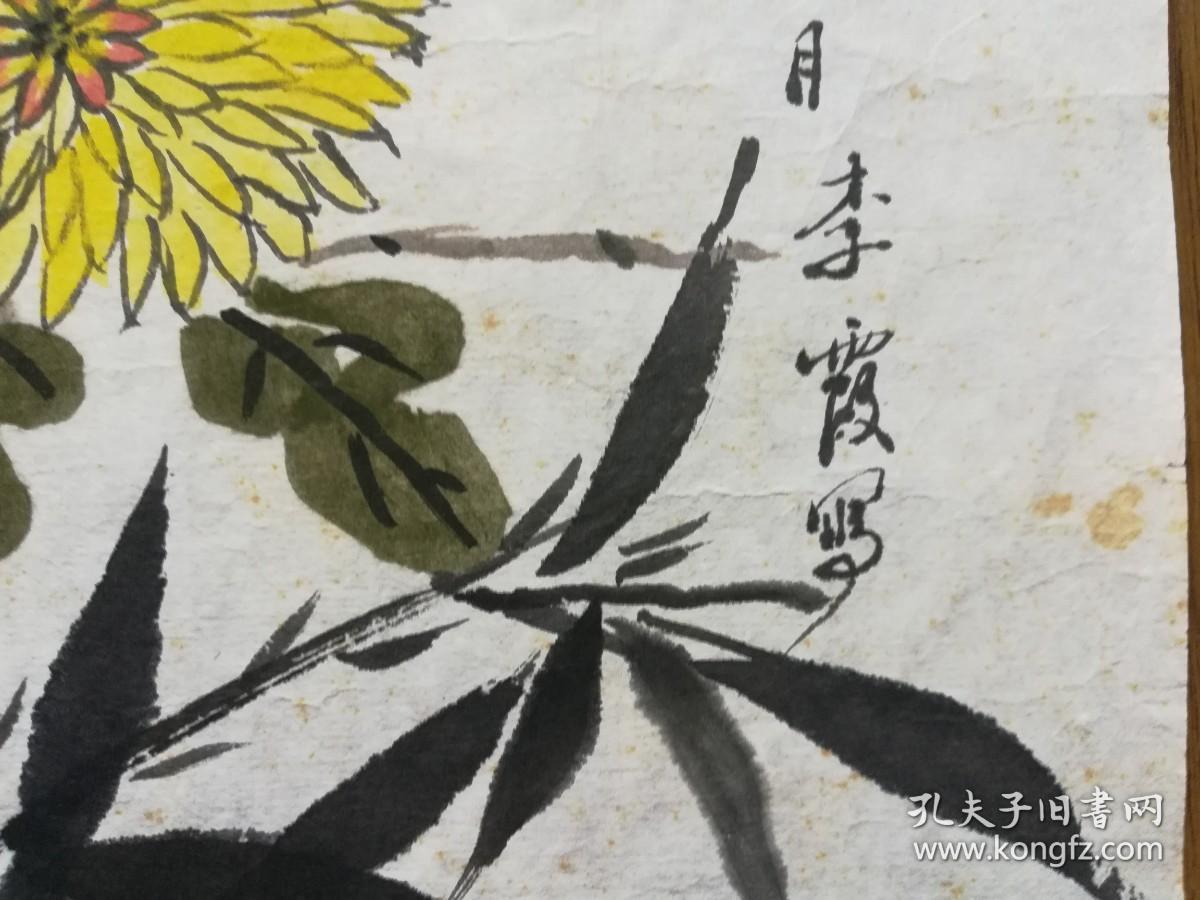 月李霞写
孔夫子旧書网
www.kongfz.com